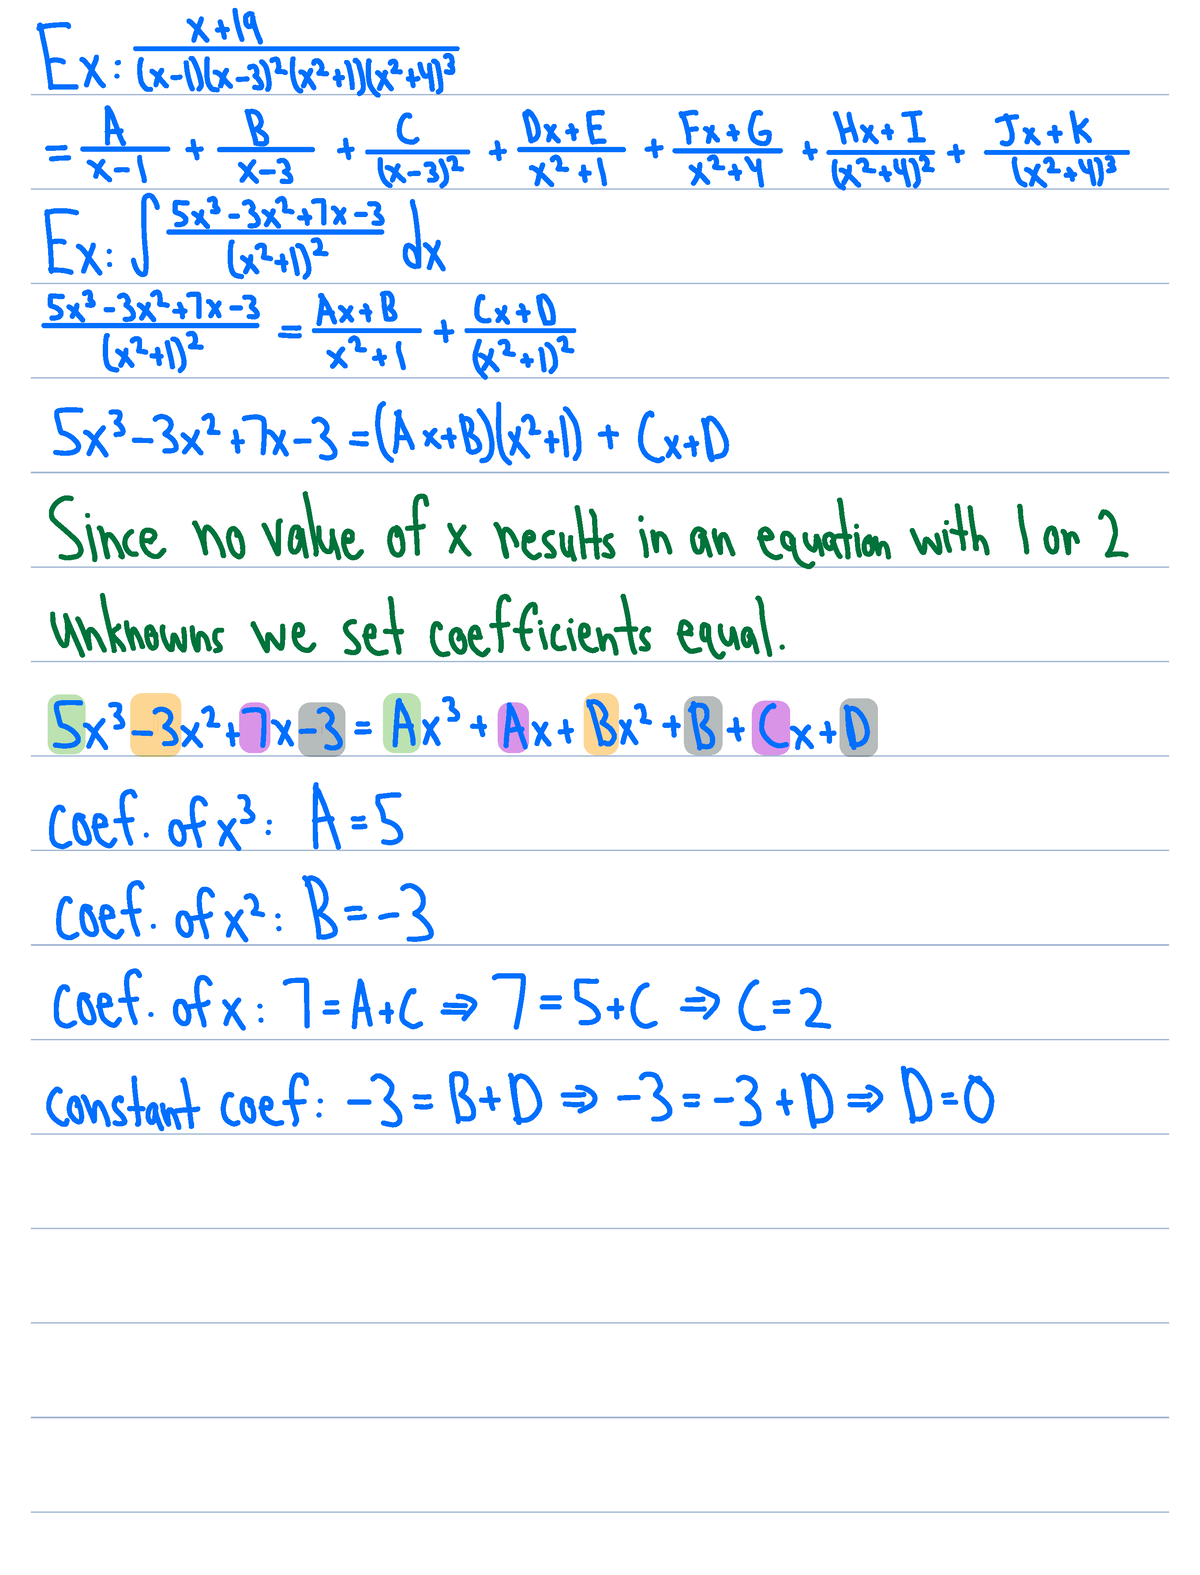 Ex: \frac{x+19}{(x-1)(x-3)^2(x^2+1)(x^2+4)^3}
= \frac{A}{x-1} + \frac{B}{x-3} + \frac{C}{(x-3)^2} + \frac{Dx+E}{x^2+1} + \frac{Fx+G}{x^2+4} + \frac{Hx+I}{(x^2+4)^2} + \frac{Jx+K}{(x^2+4)^3}
Ex: \int \frac{5x^3-3x^2+7x-3}{(x^2+1)^2} dx
\frac{5x^3-3x^2+7x-3}{(x^2+1)^2} = \frac{Ax+B}{x^2+1} + \frac{Cx+D}{(x^2+1)^2}
5x^3-3x^2+7x-3 = (Ax+B)(x^2+1) + Cx+D
Since no value of x results in an equation with 1 or 2
unknowns we set coefficients equal.
5x^3-3x^2+7x-3 = Ax^3+Ax+Bx^2+B+Cx+D
coef. of x^3: A=5
coef. of x^2: B=-3
coef. of x: 7=A+C ⇒ 7=5+C ⇒ C=2
constant coef: -3=B+D ⇒ -3=-3+D ⇒ D=0